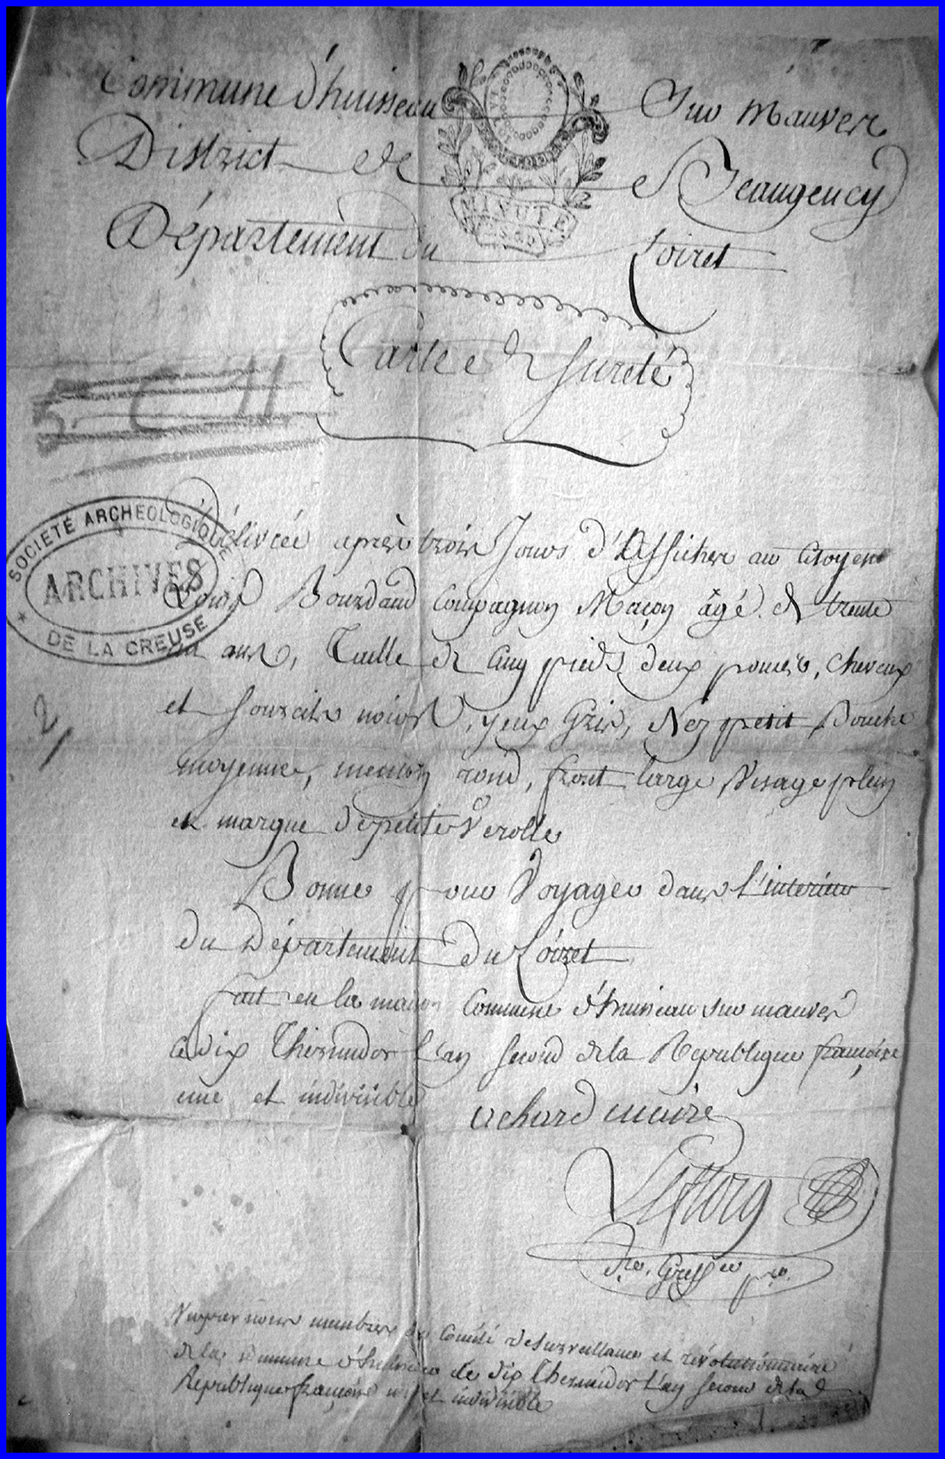 Commune d'huisseau Sur Mauves
District de Beaugency
Département du Loiret
LA LOY
MINUTE
Carte de Sureté
5 C 11
SOCIÉTÉ ARCHEOLOGIQUE
ARCHIVES
DE LA CREUSE
Délivrée après trois Jours d'Afficher au Citoyen
Louis Bourdaud Compagnon Maçon âgé de trente
un ans, Taille de Cinq pieds deux pouces, cheveux
et Sourcils noirs, yeux Gris, Nez petit Bouche
moyenne, menton rond, front large Visage plein
et marque de petite Verolle
2/
Bonne pour Voyager dans l'interieur
du Département du Loiret
fait en la maison Commune d'huisseau sur mauves
le dix Thermidor l'an Second de la Republique francoise
une et indivisible
achard maire
Greff
Vu par nous membres du Comité de Surveillance et révolutionnaire
de la Commune d'huisseau ce dix Thermidor L'an Second de la
Republique françoise une et indivisible